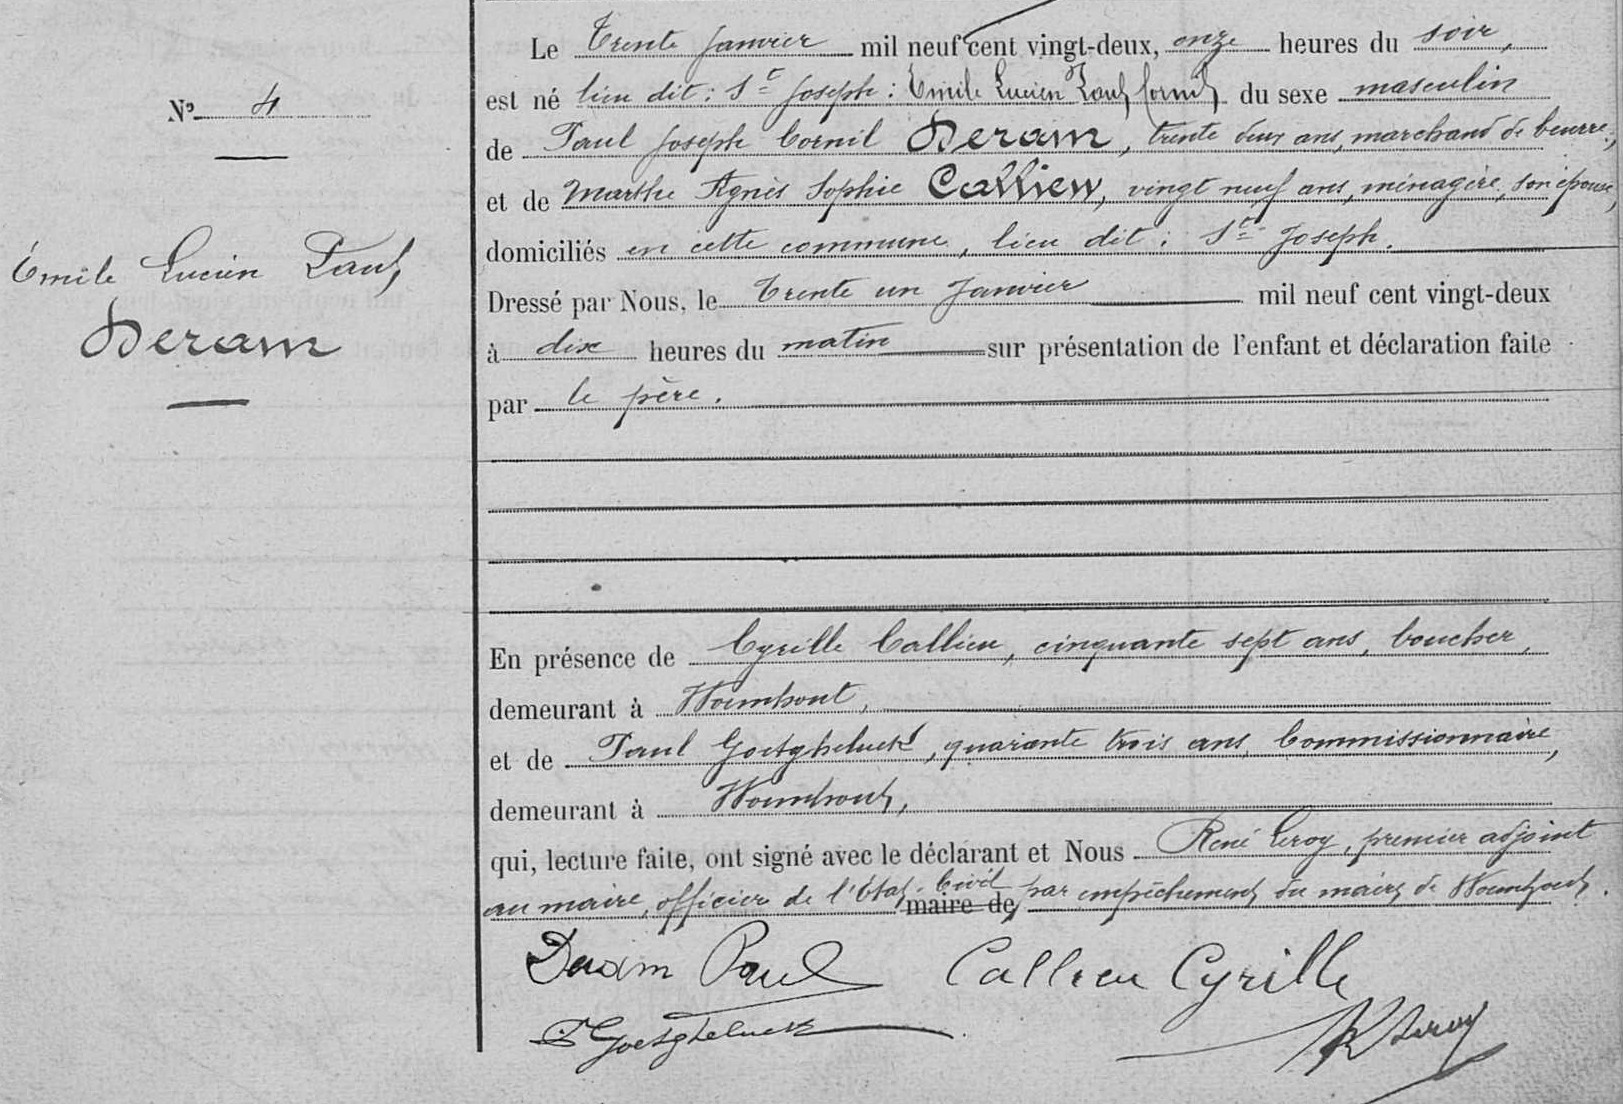 N° 4
Emile Lucien Paul
Deram
Le Trente Janvier mil neuf cent vingt-deux, onze heures du soir,
est né lieu dit : St Joseph : Emile Lucien Paul Cornil du sexe masculin
de Paul Joseph Cornil Deram, trente deux ans, marchand de beurre,
et de Marthe Agnès Sophie Callieu, vingt neuf ans, ménagère, son épouse,
domiciliés en cette commune, lieu dit : St Joseph.
Dressé par Nous, le Trente un Janvier mil neuf cent vingt-deux
à dix heures du matin sur présentation de l'enfant et déclaration faite
par le père.
En présence de Cyrille Callieu, cinquante sept ans, boucher,
demeurant à Wormhout,
et de Paul Goetgheluck, quarante trois ans, Commissionnaire,
demeurant à Wormhout,
qui, lecture faite, ont signé avec le déclarant et Nous René Leroy, premier adjoint
au maire, officier de l'Etat-Civil maire de par empêchement du maire de Wormhout.
Deram Paul Callieu Cyrille
P Goetgheluck R Leroy